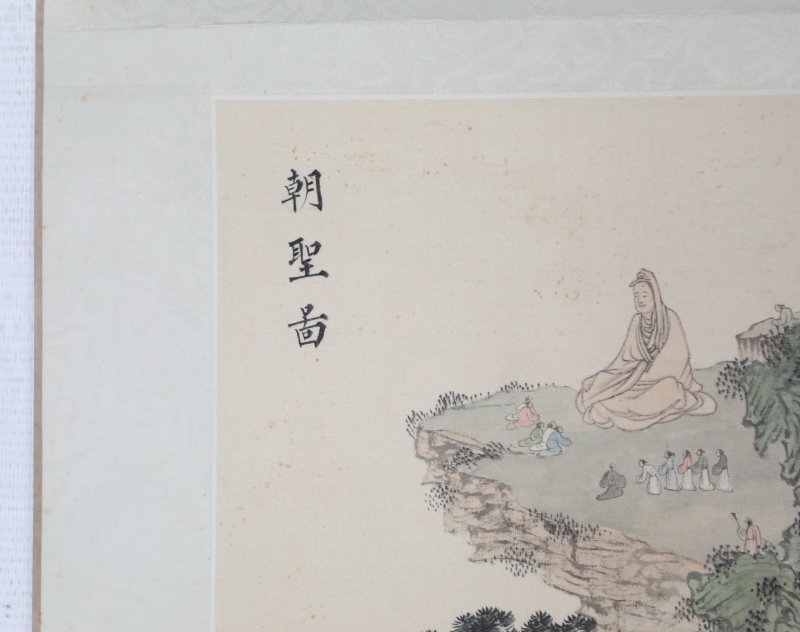 朝聖啚